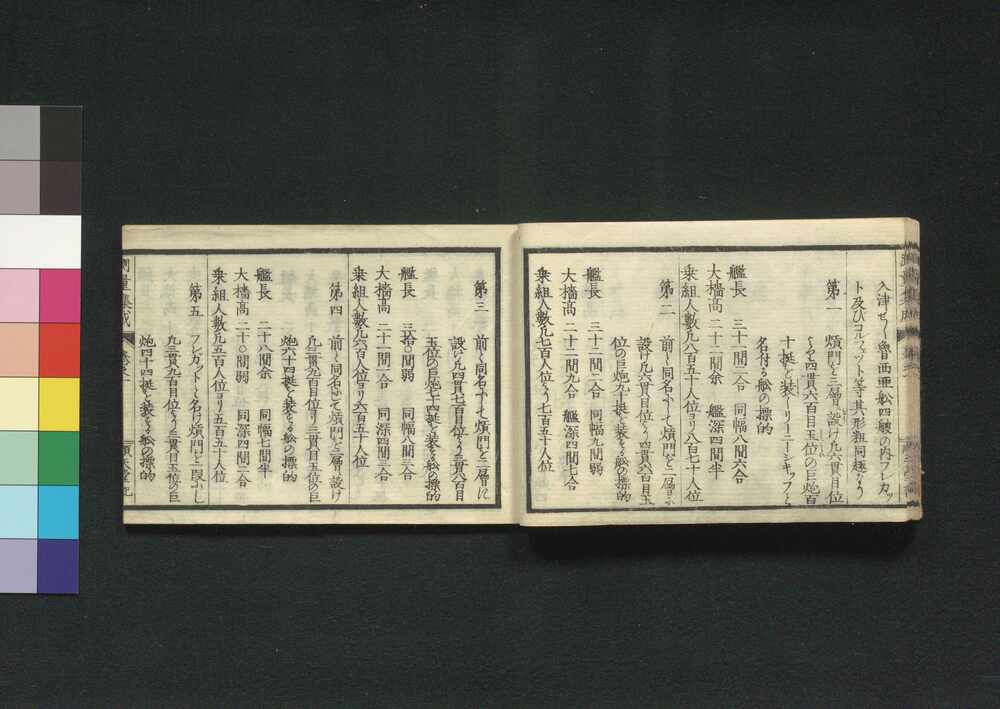 入津せし魯西亜舩四艘の内フレカッ
ト及びコルヘット等其形粗同趣なり
第一 熕門を三層に設け九六貫目位
より四貫六百目玉位の巨炮百
十挺を装しリーニーシキップと
名付る舩の標的
艦長 三十一間二合 同幅八間六合
大檣高 二十二間余 艦深四間半
乗組人数凡八百五十人位ヨリ八百七十人位
第二 前と同名にして熕門を二層に
設け凡六貫目位より四貫六百目玉
位の巨炮九十挺を装る舩の標的
艦長 三十一間二合 同幅九間弱
大檣高 二十二間九合 艦深四間二合
乗組人数凡七百人位より七百五十人位
第三 前と同名にして熕門を二層に
設け凡四貫七百目位より三貫六百目
玉位の巨炮七十四挺を装る舩の標的
艦長 三拾〇間弱 同幅八間三合
大檣高 二十一間二合 同深四間三合
乗組人数凡六百人位ヨリ六百五十人位
第四 前と同名にて熕門を二層に設け
凡三貫九百目位より三貫目玉位の巨
炮六十四挺を装る舩の標的
艦長 二十八間余 同幅七間半
大檣高 二十〇間弱 同深四間二合
乗組人数凡五百人位ヨリ五百五十人位
第五 フレカットと名け熕門を二段にし
凡三貫九百目位より三貫目玉位の巨
炮四十四挺を装る舩の標的